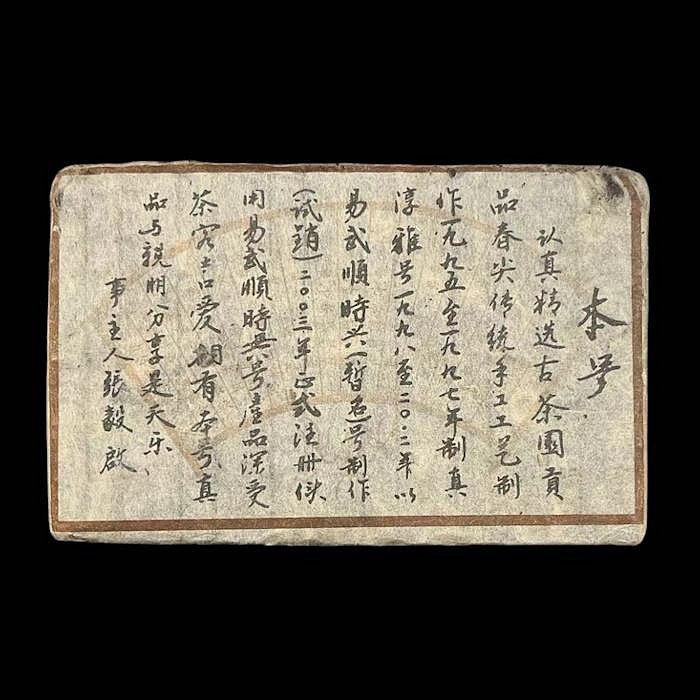 本号
认真精选古茶園貢
品春尖传统手工工艺制
作一九九五至一九九七年制真
淳雅号一九九八至二〇〇二年以
易武順時兴(暂)名号制作
(试銷)二〇〇三年正式注册使
用易武順時興号産品深受
茶客古口爱擁有本号真
品与親朋分享是天乐
事主人張毅啟